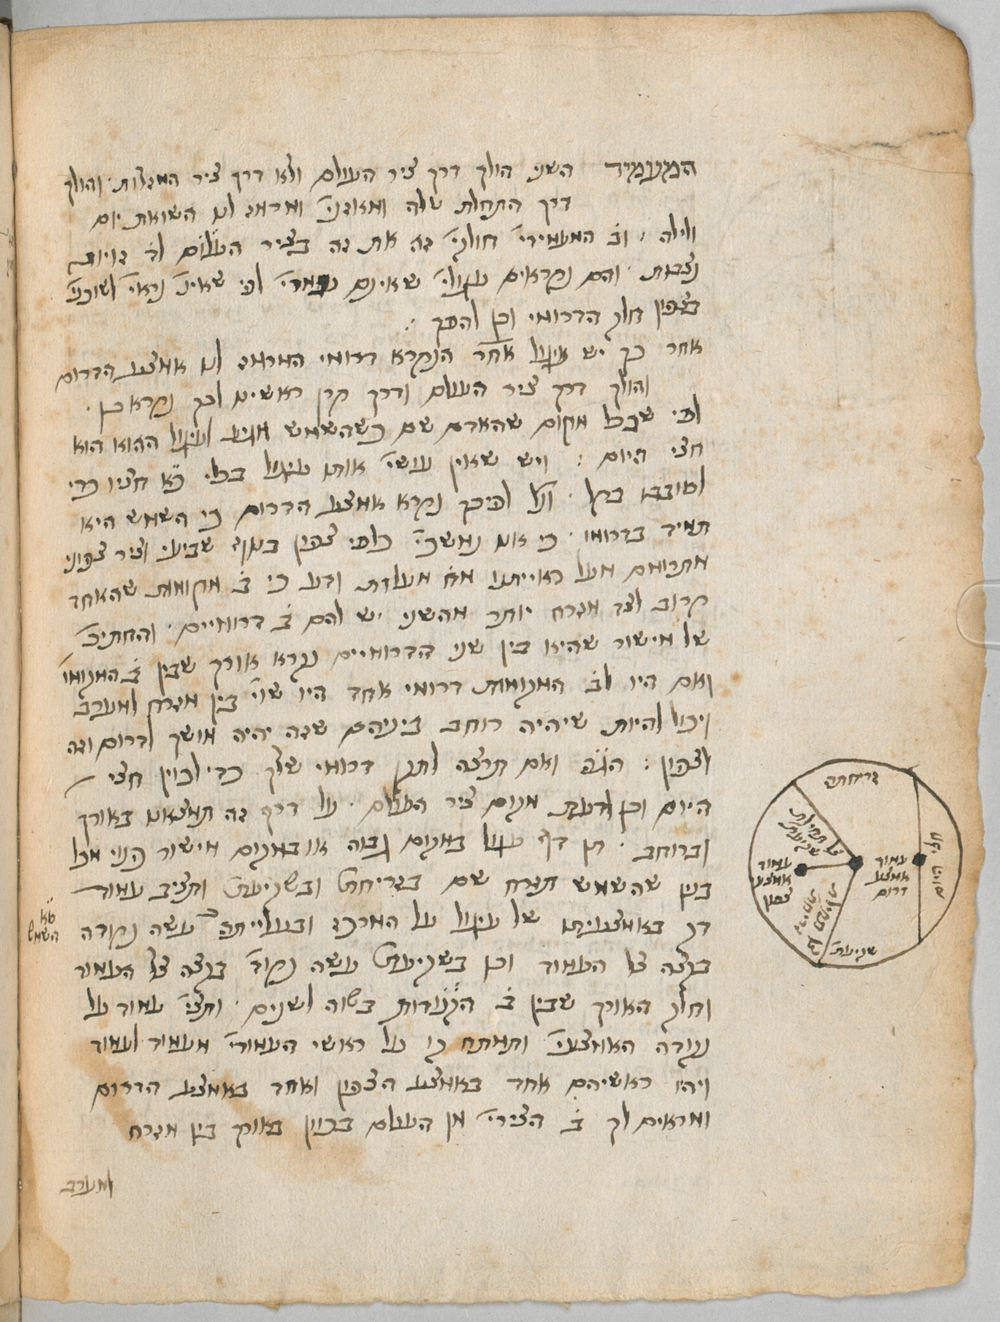 המעמיד השני הולך דרך ציר העולם ולא דרך ציר המזלות והולך
דרך התחלת טלה ומאזני׳ ומראה לנו השואת יום
ולילה וב׳ המעמידי׳ חולקי׳ זה את זה בציר העולם לד׳ זויות
נצבות והם נקראים עגולי׳ שאינם לפי שאינ׳ נראי׳ לשוכני׳
בצפון חלק הדרומי וכן להפך
אחר כך יש עיגול אחר הנקרא דרומי המראה לנו אמצע הדרום
והולך דרך ציר העולם ודרך קדקד ראשינו לכך נקרא כן
לפי שבכל מקום שהאדם שם כשהשמש מגיע לעיגול ההוא הוא
חצי היום ויש שאין עושי׳ אותו עיגול בכלי כ״א חציו כדי
לסובבו בקל ועל לפיכך נקרא אמצע הדרום כי השמש היא
תמיד בדרומו כי אנו נמשכי׳ כלפי צפון שביעי וציר צפוני
מתרומם מעל ראייתנו מ״ח מעלות ודע כי ב׳ מקומות שהאחד
קרוב לצד מזרח יותר מהשני יש להם ב׳ דרומיים והחתיכ׳
של מישור שהיא בין שני הדרומיים נקרא אורך שבין ב׳ המקומו׳
ואם היו לב׳ המקומות דרומי אחד היו שוי׳ בין מזרח למערב
ויכול להיות שיהיה רוחב ביניהם שזה יהיה מושך לדרום וזה
לצפון ואם תרצה לתקן דרומי שלך כדי לכוין חצי
היום וכן לדעת מקום ציר העולם על דרך זה תמצאנו באורך
וברוחב תן דף עגול במקום גבוה או במקום מישור פנוי מכל
בנין שהשמש תזרח שם בזריחת׳ ובשקיעת׳ ותציב עמוד
דק באמצעיתו של עיגול על המרכז ובעלייתה עשה נקודה
בקצה צל העמוד וכן בשקיעת׳ עשה נקוד׳ בקצה צל העמוד
וחלק האורך שבין ב׳ הנקודות בשוה לשנים ותצי׳ עמוד על
נקודה האמצעי׳ ותמתח קו על ראשי העמודי׳ מעמוד לעמוד
ויהיו ראשיהם אחד באמצע הצפון ואחד באמצע הדרום
ומראים לך ב׳ הצירי׳ מן העולם בכוון באורך בין מזרח
ומערב
השמש
זריחתה
צל תחילת
שקיעת׳
עמוד
אמצעי
צפון
עמוד
אמצע
דרום
חצי היום
שקיעת׳